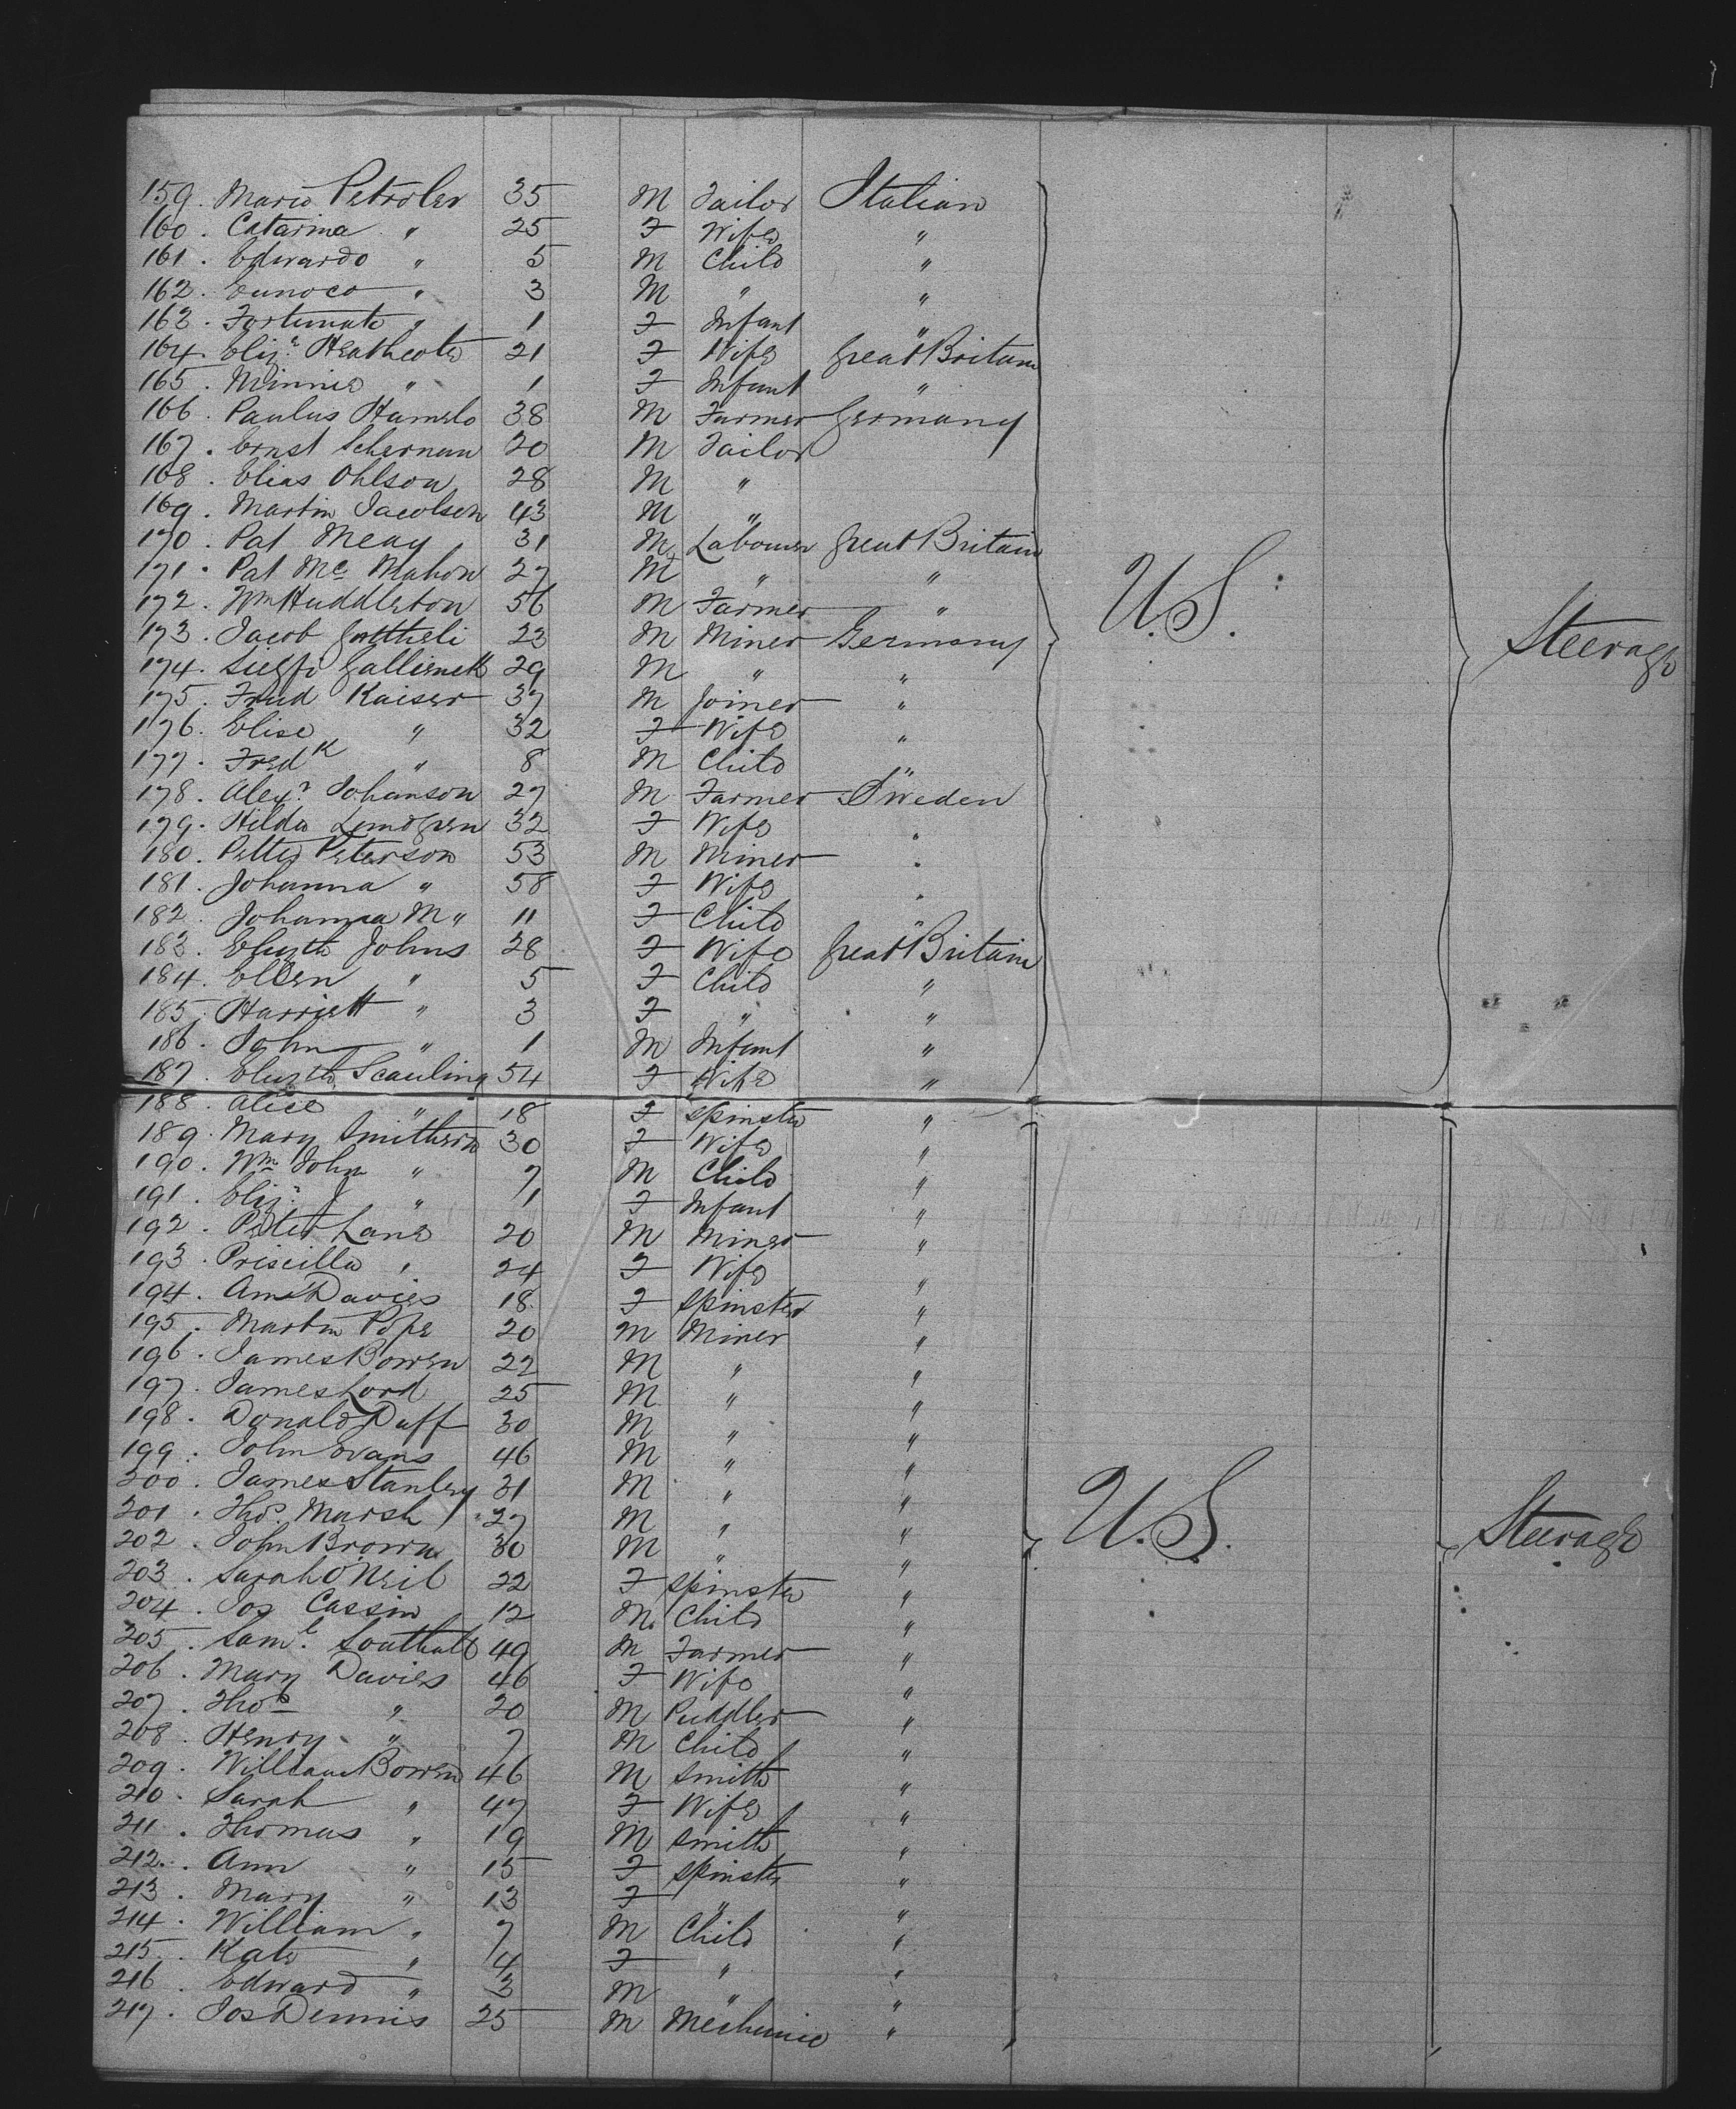 159. Mario Petroler 35 M Tailor Italian
160. Catarina " 25 F Wife "
161. Edwardo " 5 M Child "
162. " 3 M " "
163. Fortunato " 1 F Infant "
164. Eliz.a Heathcote 21 F Wife Great Britain
165. Minnie " 1 F Infant "
166. Paulus Hamelo 38 M Farmer Germany
167. Ernst Scherman 20 M Tailor
168. Elias Ohlson 28 M "
169. Martin Jacolsen 43 M "
170. Pat Meay 31 M Labourer Great Britain
171. Pat Mc Mahon 27 M " "
172. Wm Huddleton 56 M Farmer "
173. Jacob 23 M Miner Germany
174. 29 M " "
175. Fried Kaiser 37 M Joiner "
176. Elise " 32 F Wife "
177. Fredk " 8 M Child "
178. Alexr Johanson 27 M Farmer Sweden
179. Hilda Lindgren 32 F Wife "
180. Petter Peterson 53 M Miner "
181. Johanna " 58 F Wife "
182. Johanna M " 11 F Child "
183. Elizth Johns 28 F Wife Great Britain
184. Ellen " 5 F Child "
185. Harriett " 3 F " "
186. John " 1 M Infant "
187. Elizth Scauling 54 F Wife "
U.S.
Steerage
188. Alice " 18 F Spinster "
189. Mary Smithern 30 F Wife "
190. Wm John " 7 M Child "
191. Eliz.a J " 1 F Infant "
192. Peter Lane 20 M Miner "
193. Priscilla " 24 F Wife "
194. Ann Davies 18 F Spinster "
195. Martin Pope 20 M Miner "
196. James Bowen 22 M " "
197. James Lord 25 M " "
198. Donald Duff 30 M " "
199. John Evans 46 M " "
200. James Stanley 31 M " "
201. Thos. Marsh 27 M " "
202. John Brown 30 M " "
203. Sarah O'Neil 22 F Spinster "
204. Jos Cassin 12 M Child "
205. Saml. Southall 49 M Farmer "
206. Mary Davies 46 F Wife "
207. Thos " 20 M Puddler "
208. Henry " 7 M Child "
209. William Bowen 46 M Smith "
210. Sarah " 47 F Wife "
211. Thomas " 19 M Smith "
212. Ann " 15 F Spinster "
213. Mary " 13 F " "
214. William " 7 M Child "
215. Kate " 4 F " "
216. Edward " 3 M " "
217. Jos Dennis 25 M Mechanic "
U.S.
Steerage